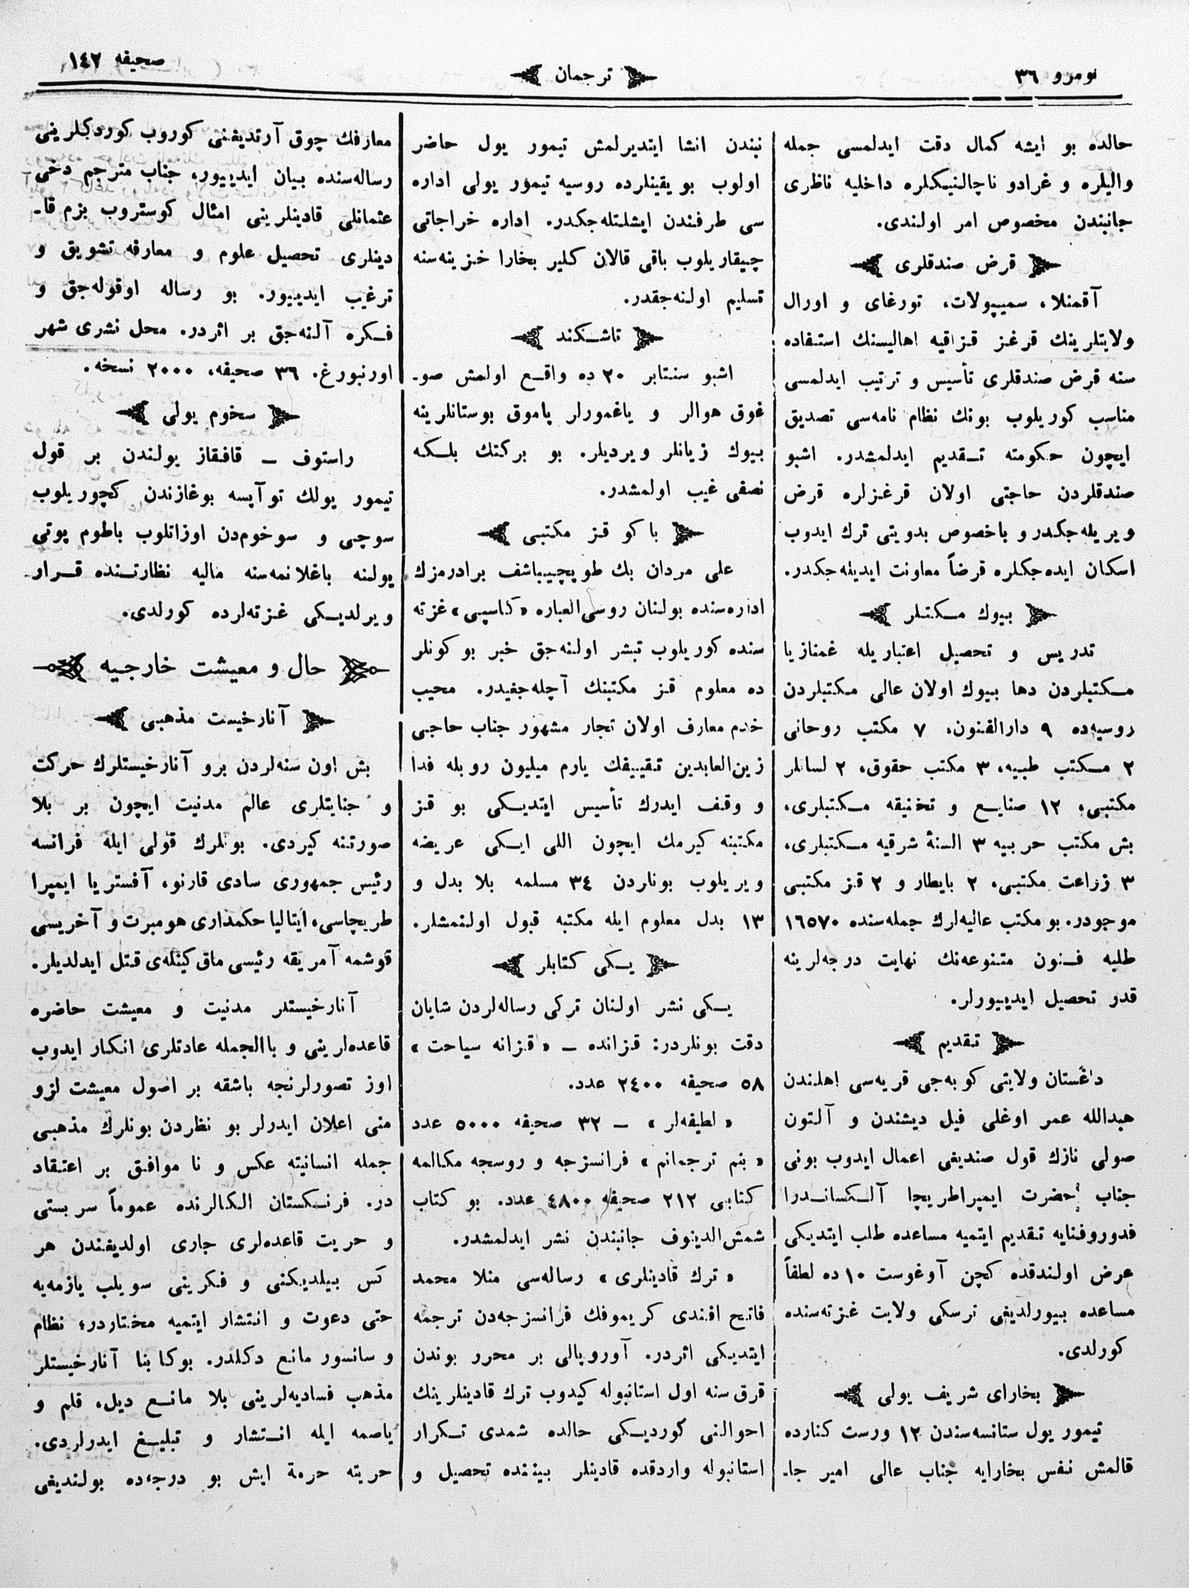 نومرو ٣٦
ترجمان
صحيفه ١٤٢
حالده بو ايشه كمال دقت ايدلمسى جمله
واليلره و غرادو ناچالنيكلره داخليه ناظرى
جانبندن مخصوص امر اولندى.
قرض صندقلرى
آقمنلا، سميپولات، تورغاى و اورال
ولايتلرينك قرغز قزاقيه اهاليسنك استفاده
سنه قرض صندقلرى تأسيس و ترتيب ايدلمسى
مناسب كوريلوب بونك نظام نامه‌سى تصديق
ايچون حكومته تقديم ايدلمشدر. اشبو
صندقلردن حاجتى اولان قرغزلره قرض
ويريله‌جكدر و باخصوص بدويتى ترك ايدوب
اسكان ايده‌جكلره قرضاً معاونت ايديله‌جكدر.
بيوك مكتبلر
تدريس و تحصيل اعتباريله غمنازيا
مكتبلردن دها بيوك اولان عالى مكتبلردن
روسيه‌ده ٩ دارالفنون، ٧ مكتب روحانى
٢ مكتب طبيه، ٣ مكتب حقوق، ٢ لسانلر
مكتبى، ١٢ صنايع و تخنيقه مكتبلرى،
بش مكتب حربيه ٣ السنۀ شرقيه مكتبلرى،
٣ زراعت مكتبى، ٢ بايطار و ٢ قز مكتبى
موجودر. بو مكتب عاليه‌لرك جمله‌سنده ١٦٥٧٠
طلبه فنون متنوعه‌نك نهايت درجه‌لرينه
قدر تحصيل ايدييورلر.
تقديم
داغستان ولايتى كوبه‌جى قريه‌سى اهلندن
عبدالله عمر اوغلى فيل ديشندن و آلتون
صولى نازك قول صنديغى اعمال ايدوب بونى
جناب حضرت ايمپراطريچا آلكساندرا
فدوروفنايه تقديم ايتميه مساعده طلب ايتديكى
عرض اولندقده كچن آوغوست ١٠ ده لطفاً
مساعده بيورلديغى ترسكى ولايت غزته‌سنده
كورلدى.
بخاراى شريف يولى
تيمور يول ستانسه‌سندن ١٢ ورست كنارده
قالمش نفس بخارايه جناب عالى امير جا-
نبندن انشا ايتديرلمش تيمور يول حاضر
اولوب بو يقينلرده روسيه تيمور يولى اداره
سى طرفندن ايشلتله‌جكدر. اداره خراجاتى
چيقاريلوب باقى قالان كلير بخارا خزينه‌سنه
تسليم اولنه‌جقدر.
تاشكند
اشبو سنتابر ٢٠ ده واقع اولمش صو-
غوق هوالر و ياغمورلر پاموق بوستانلرينه
بيوك زيانلر ويرديلر. بو بركتك بلكه
نصفى غيب اولمشدر.
باكو قز مكتبى
على مردان بك طوپچيباشف برادرمزك
اداره‌سنده بولنان روسى‌العباره «كاسپى» غزته
سنده كوريلوب تبشر اولنه‌جق خبر بو كونلر
ده معلوم قز مكتبنك آچله‌جغيدر. محيب
خدم معارف اولان تجار مشهور جناب حاجى
زين‌العابدين تقييفك يارم ميليون روبله فدا
و وقف ايدرك تأسيس ايتديكى بو قز
مكتبنه كيرمك ايچون اللى ايكى عريضه
ويريلوب بونلردن ٣٤ مسلمه بلا بدل و
١٣ بدل معلوم ايله مكتبه قبول اولنمشلر.
يكى كتابلر
يكى نشر اولنان تركى رساله‌لردن شايان
دقت بونلردر: قزانده — «قزانه سياحت»
٥٨ صحيفه ٢٤٠٠ عدد.
«لطيفه‌لر» — ٣٢ صحيفه ٥٠٠٠ عدد
«بنم ترجمانم» فرانسزجه و روسجه مكالمه
كتابى ٢١٢ صحيفه ٤٨٠٠ عدد. بو كتاب
شمش‌الدينوف جانبندن نشر ايدلمشدر.
«ترك قادينلرى» رساله‌سى منلا محمد
فاتح افندى كريموفك فرانسزجه‌دن ترجمه
ايتديكى اثردر. آوروپالى بر محرر بوندن
قرق سنه اول استانبوله كيدوب ترك قادينلرينك
احوالنى كورديكى حالده شمدى تكرار
استانبوله واردقده قادينلر بيننده تحصيل و
معارفك چوق آرتديغنى كوروب كوردكلرينى
رساله‌سنده بيان ايدييور، جناب مترجم دخى
عثمانلى قادينلرينى امثال كوستروب بزم قا-
دينلرى تحصيل علوم و معارفه تشويق و
ترغيب ايدييور. بو رساله اوقوله‌جق و
فكره آلنه‌جق بر اثردر. محل نشرى شهر
اورنبورغ. ٣٦ صحيفه، ٢٠٠٠ نسخه.
سخوم يولى
راستوف — قافقاز يولندن بر قول
تيمور يولك توآپسه بوغازندن كچوريلوب
سوچى و سوخوم‌دن اوزاتلوب باطوم پوتى
يولنه باغلانمه‌سنه ماليه نظارتنده قرار
ويرلديكى غزته‌لرده كورلدى.
حال و معيشت خارجيه
آنارخيست مذهبى
بش اون سنه‌لردن برو آنارخيستلرك حركت
و جنايتلرى عالم مدنيت ايچون بر بلا
صورتنه كيردى. بونلرك قولى ايله فرانسه
رئيس جمهورى سادى قارنو، آفستريا ايمپرا
طريچاسى، ايتاليا حكمدارى هومبرت و آخريسى
قوشمه آمريقه رئيسى ماق كينله‌ى قتل ايدلديلر.
آنارخيستلر مدنيت و معيشت حاضره
قاعده‌لرينى و باالجمله عادتلرى انكار ايدوب
اوز تصورلرنجه باشقه بر اصول معيشت لزو
منى اعلان ايدرلر بو نظردن بونلرك مذهبى
جمله انسانيته عكس و نا موافق بر اعتقاد
در. فرنكستان الكالرنده عموماً سربستى
و حريت قاعده‌لرى جارى اولديغندن هر
كس بيلديكنى و فكرينى سويلب يازمه‌يه
حتى دعوت و انتشار ايتميه مختاردر؛ نظام
و سانسور مانع دكلدر. بوكا بنا آنارخيستلر
مذهب فساديه‌لرينى بلا مانع ديل، قلم و
ياصمه ايله انتشار و تبليغ ايدرلردى.
حريته حرمة ايش بو درجه‌ده بولنديغى